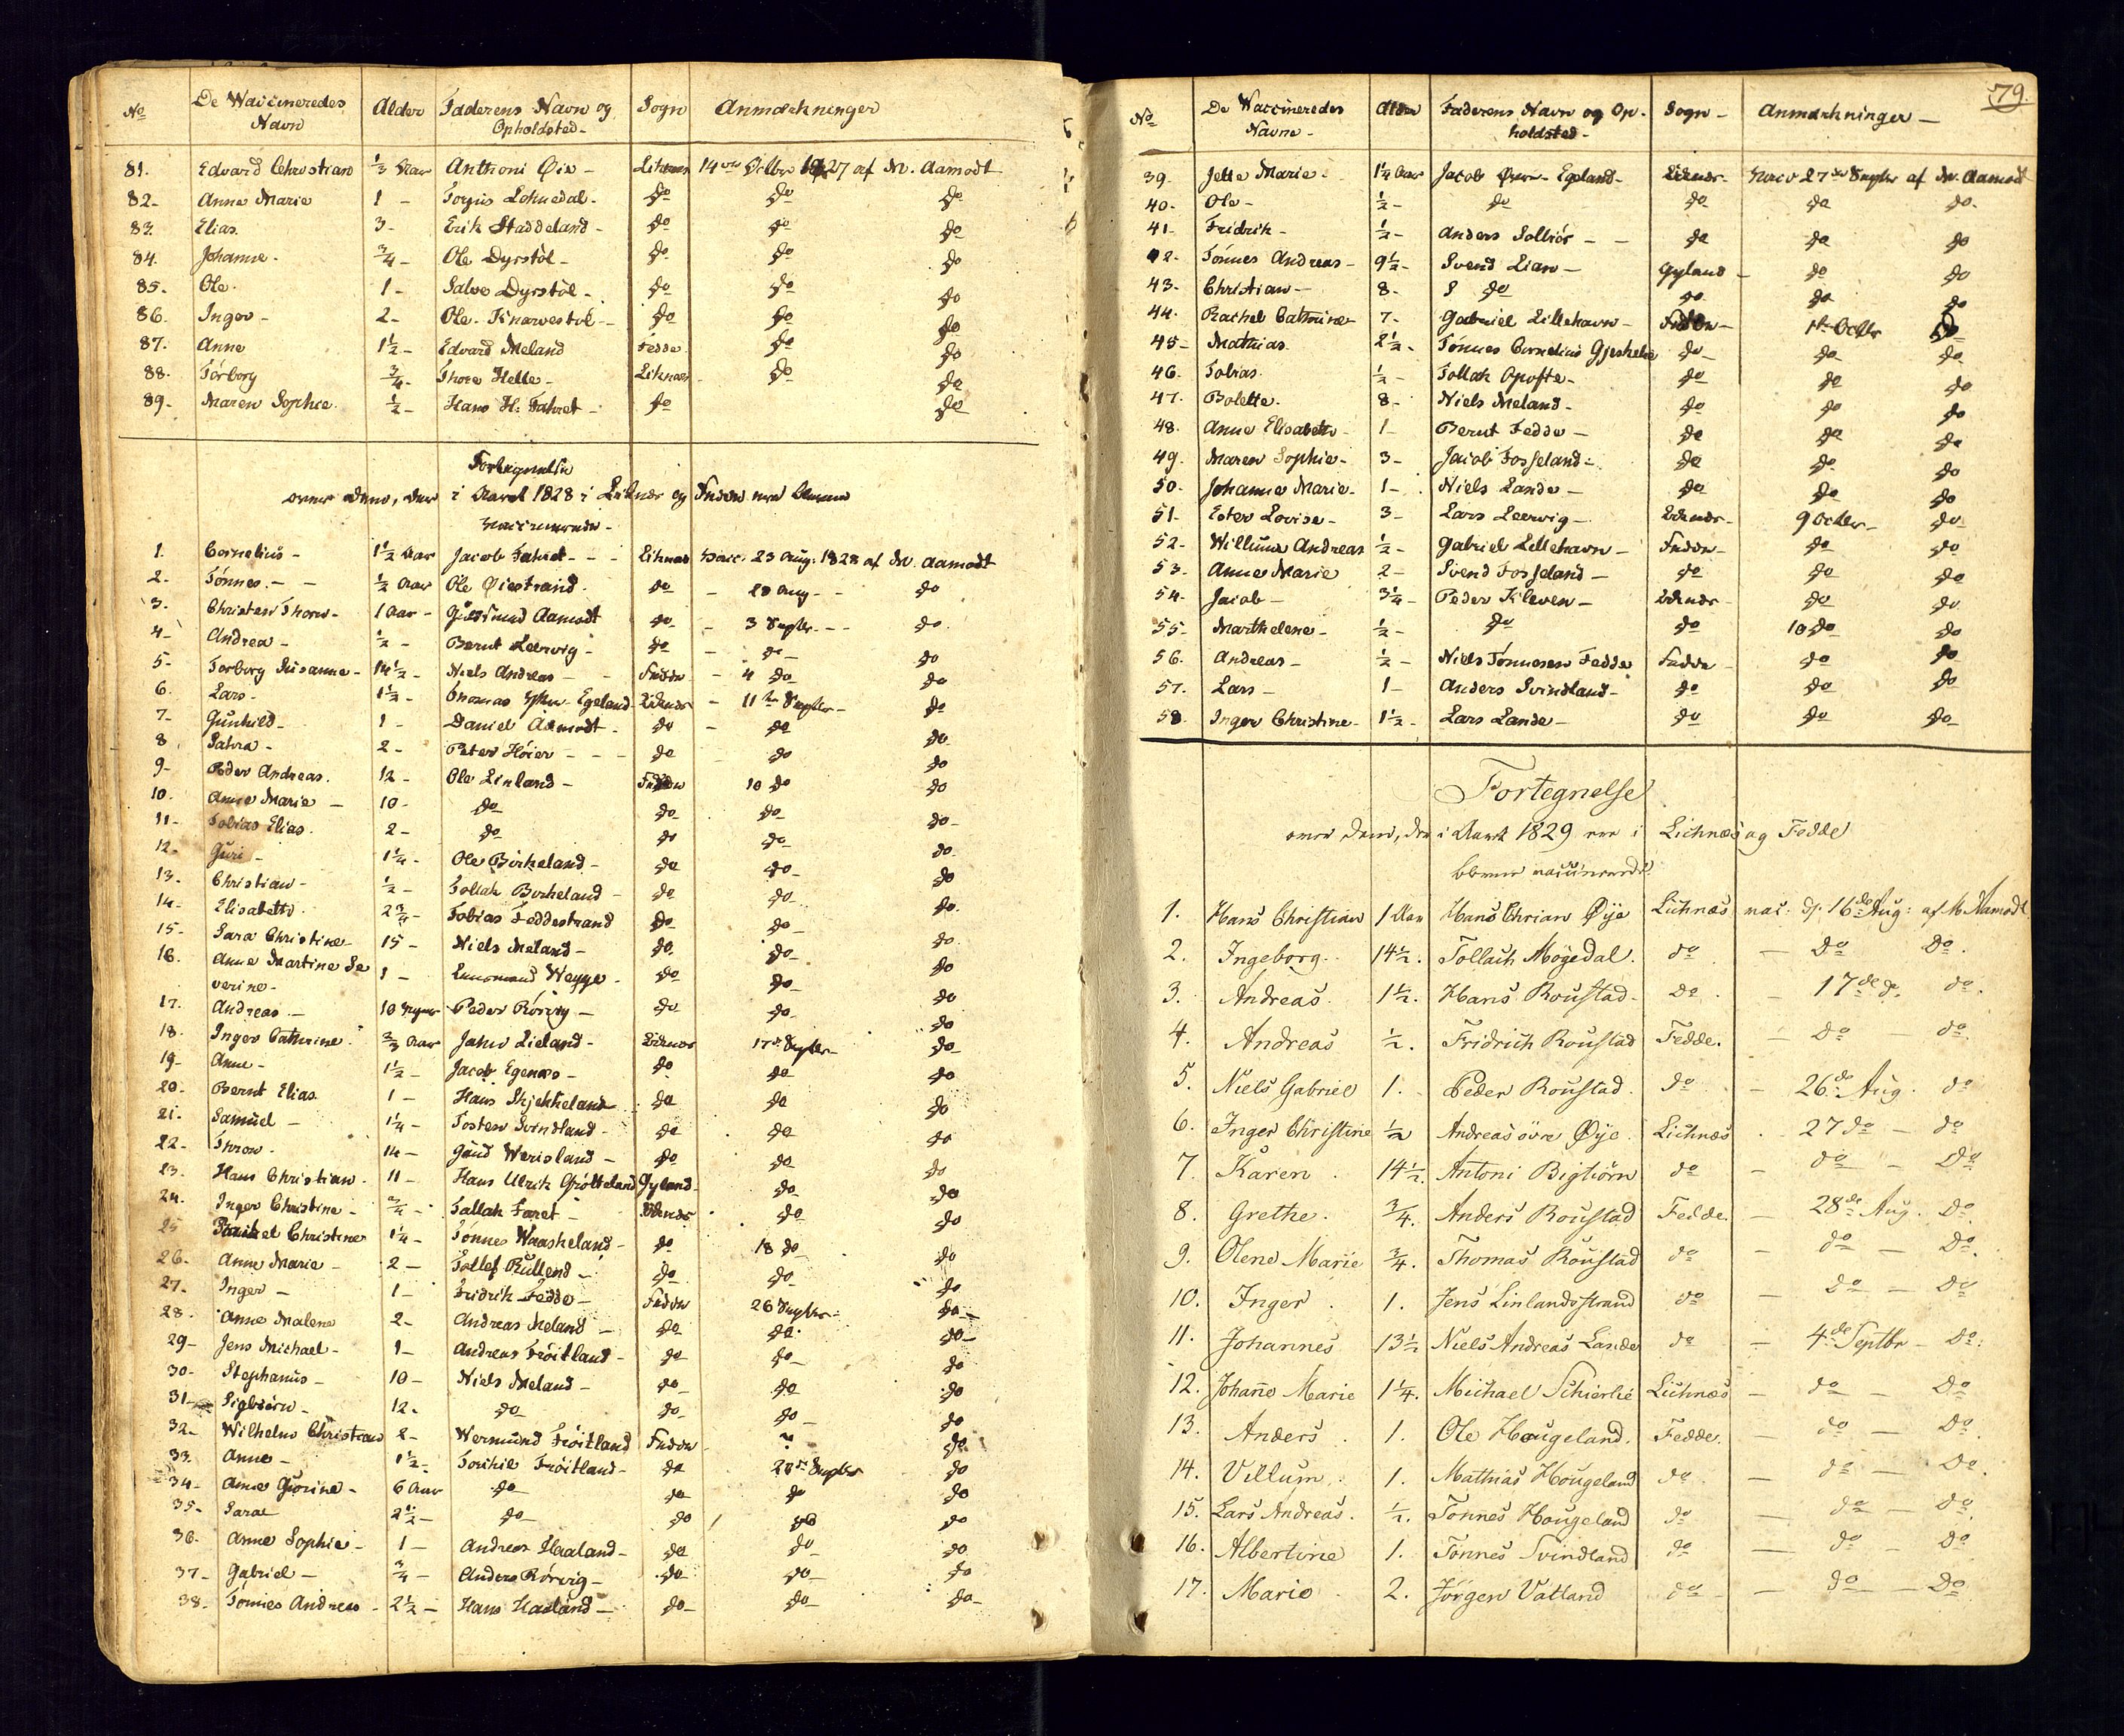 No De Vaccineredes Navn Alder Faderens Navn og Opholdsted- Sogn Anmærkninger
81. Edvard Christian 1/3 Aar Anthoni Øie - Liknæs 14 Octbr 1827 af M. Aamodt
82- Anne Marie 1 - do do do
83. Elias. 3- Erik Staddeland - do do do
84. Johanne - 3/4 - Ole Dyrstöl - do do do
85- Ole. 1 - Salve Dyrstöl - do do do
86. Inger - 2- Ole Knarvestöl - do do do
87. Anne 1 1/2 - Edvard Meland Fedde do do
88. Torborg 3/4 - Thore Helle - Liknæs do do
89- Maren Sophie. 1/2 - Hans H: Fahret - do do
Fortegnelse
over dem, der i Aaret 1828 i Liknæs og Fedde ere blevne
vaccinerede -
1. Cornelius - 1 1/2 Aar Jacob Fahret - - - Liknæs Vacc: 23 Aug: 1828 af M. Aamodt
2- Tönnes - - 1/2 Aar Ole Øiestrand. do - 28 Aug - - do
3. Christen Thore - 1 Aar - Gudmund Aamodt do - 3 Septbr - - do.
4- Andrea - 1/2 - Bernt Leervig - do - do - do
5- Torborg Susanne - 14 1/2 - Niels Andreas - - Fedde - 4 do do
6. Lars - 1 1/2 - Thomas Egeland Liknæs - 11 Septbr - do
7- Gunhild - 1 - Daniel Aamodt - do - do do
8 Sahra - 2 - Peter Höier - - - do do do
9- Peder Andreas. 12 - Ole Linland - Fedde 10 do do
10. Anne Marie - 10 - do do do do -
11- Tobias Elias. 2 - do do do do.
12- Guri - 1 1/4 - Ole Birkeland - do do - do
13. Christian - 1/2 - Tollak Birkeland - do do - do.
14- Elisabeth. 2 3/4 - Tobias Feddestrand do do - do.
15- Sara Christine - 15 - Niels Meland - do. do - do
16. Anne Martine Se 1 - Weyge - do do - do
verine -
17. Andreas - 10 Peder Rörvig - do do - do
18. Inger Cathrine. 2/3 Aar Lieland - Liknæs 17 Septbr - do -
19- Anne - 1 1/2 - Jacob Egenæs - do do do
20. Bernt Elias 1 - Hans Skjekkeland do do do
21. Samuel - 1 1/4 - Tosten Svindland - do do do
22- 14 - Werisland - do do do
23. Hans Christian - 11 - Hans Ulrik Gyland do do
24. Inger Christine - 3/4 - Tallak Faret - Liknæs do do
25 Christine 1 1/4 - Tönnes Waaskeland - do 18 do do
26. Anne Marie - 2 - Tollef Rullend - do do do
27. Inger - 1 - Fridrik Fedde - Fedde 26 Septbr: do -
28. Anne Malene 2- Andreas Meland - do do - do -
29- Jens Michael - 1 - Andreas Fröitland - do do - do
30- Stephanus - 10 - Niels Meland - do - do do
31- Sigbiörn - 12. do do - do - do
32- Wilhelm Christian 2- Wermund Fröitland Fedde do
33. Anne - 1 1/2 - Torkil Fröitland - do Septbr do
34- Anne Gurine - 6 Aar do do do do
35- Sara 2 1/2 - do - do do do
36. Anne Sophie - 1 - Andreas Haaland - do do do
37- Gabriel - 3/4 - Anders Rörvig - do do - do
38- Tönnes Andreas - 2 1/2 - Hans Haaland - do - do - do -
79.
No De Vaccineredes Navne - Alder Faderens Navn og Opholdsted - Sogn - Anmærkninger -
39. Jette Marie - 1 1/4 Aar Jacob Egeland - Liknæs - Vacc 27 Septbr af M. Aamodt
40- Ole - 1/2 - do do do do.
41- Fridrik - 1/2 - Anders Solbiör - - do do do
42- Tönnes Andreas - 9 1/2 - Svend Lian - Gyland - do do
43- Christian - 8 - do do do do
44. Rachel Cathrine 7- Gabriel Lillehavn - Fedde - 1 Octbr do
45- Mathias. 2 1/2 - Tönnes Cornelius do - do do
46. Tobias. 1/2 - Tollak Opofte - do do do
47. Bolette. 8- Niels Meland - do do do
48. Anne Elisabeth - 1 - Bernt Fedde - do do do
49. Maren Sophie - 3 - Jacob Fosseland - do do do
50. Johanne Marie - 1 - Niels Lande - do do do
51- Ester Lovise - 3 - Lars Leervig - Liknæs - 9 Octbr - do
52- Willum Andreas 1/2 - Gabriel Lillehavn - Fedde - do do
53- Anne Marie 2 - Svend Fosseland - do do do
54. Jacob - 3 1/4 - Peder Kleven - Liknæs - do do
55- Marthelene - 1/2 - do do 10 do do
56. Andreas - 1/2 - Niels Tönnesen Fedde Fedde - do do
57. Lars - 1 - Anders Svindland - do do do
58. Inger Christine - 1 1/2 - Lars Lande - do do do
Fortegnelse
over dem, der i Aaret 1829 ere i Lichnæs og Fedde
blevne vaccinerede
1. Hans Christian 1 Aar Hans Chrian Øye Lichnæs vac: d. 16de Aug: af M. Aamodt
2. Ingeborg. 14 1/2. Tollach Mögedal. do - Do Do.
3. Andreas. 1 1/2. Hans Roustad - Do. - 17de do. do.
4. Andreas 1/2. Fridrich Roustad Fedde. - Do - do.
5. Niels Gabriel 1. - Peder Roustad. do - 26de Aug. do
6. Inger Christine 1/2 Andreas övre Øye. Lichnæs. 27 do - do
7. Karen. 14 1/2. Antoni Bigtiörn do - do - Do
8. Grethe. 3/4. Anders Roustad Fedde. - 28de Aug. Do.
9. Olene Marie 3/4. Thomas Roustad do - do - Do.
10. Inger. 1. Jens Linlandsstrand do - Do - Do
11. Johannes 13 1/2 Niels Andreas Lande do - 4de Septbr - Do.
12. Johanne Marie 1 1/4. Michael Schierlie Lichnæs - do - Do
13. Anders. 1. Ole Hougeland. Fedde. - do - Do.
14. Villum. 1. Mathias Hougeland do - do - Do.
15. Lars Andreas. 1/2. Tönnes Hougeland do - do - Do.
16. Albertine 1. Tönnes Svindland do - do - Do
17. Marie. 2. Jörgen Vatland do - - Do - Do